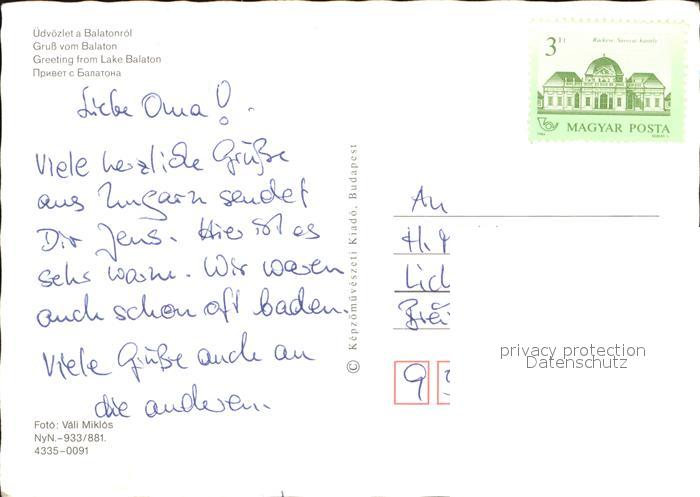 Üdvözlet a Balatonról
Gruß vom Balaton
Greeting from Lake Balaton
Привет с Балатона
Liebe Oma!
Viele herzliche Grüße
aus Ungarn sendet
Dir Jens. Hier ist es
sehr warm. Wir waren
auch schon oft baden.
Viele Grüße auch an
die anderen.
Fotó: Váli Miklós
NyN.–933/881.
4335–0091
© Képzőművészeti Kiadó, Budapest
3 Ft
Ráckeve, Savoyai-kastély
MAGYAR POSTA
An
H.
9
privacy protection
Datenschutz